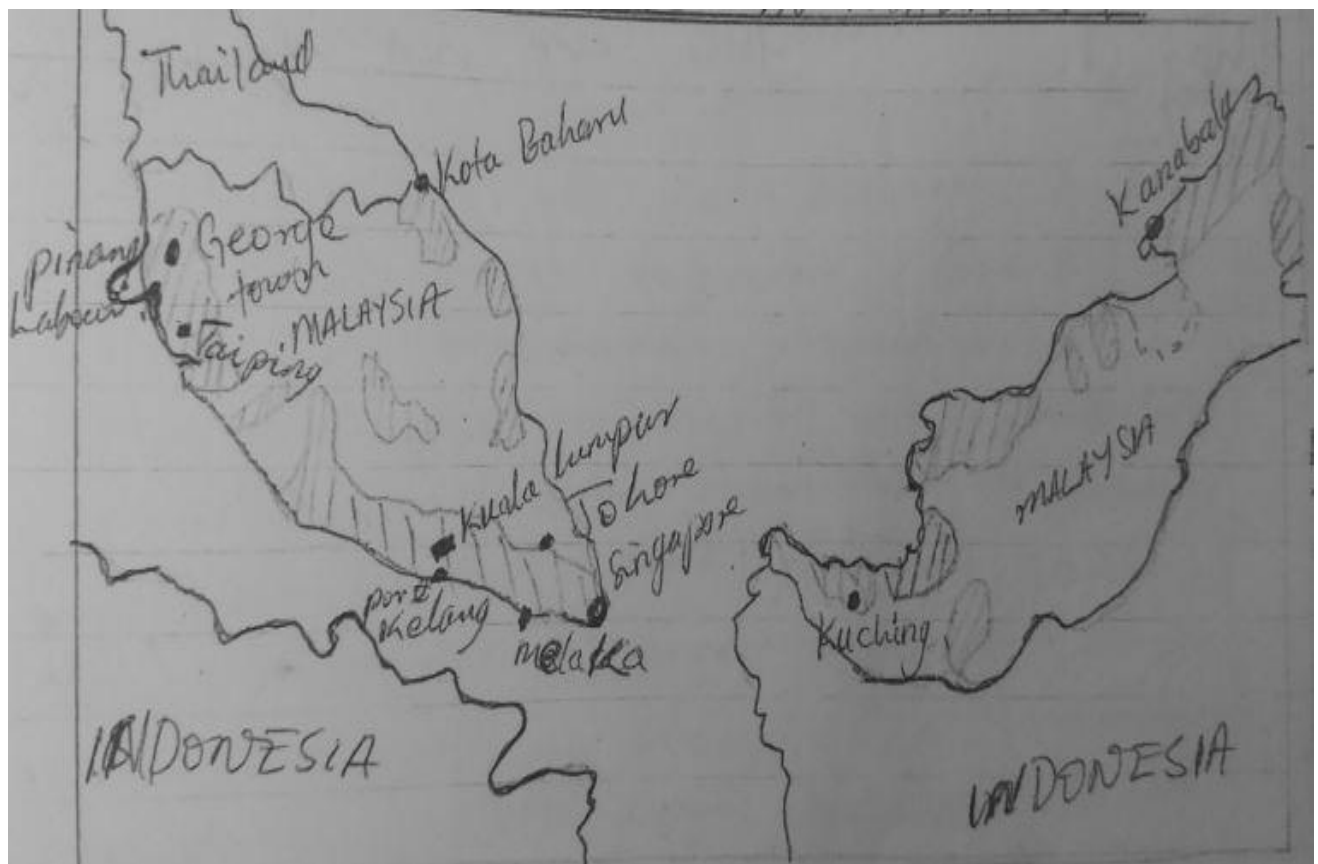 Thailand
Kota Baharu
Kanabalu
Pinang
George
town
MALAYSIA
Taiping
Kuala Lumpur
Johore
Singapore
MALAYSIA
port
Kelang
Melaka
Kuching
INDONESIA
INDONESIA